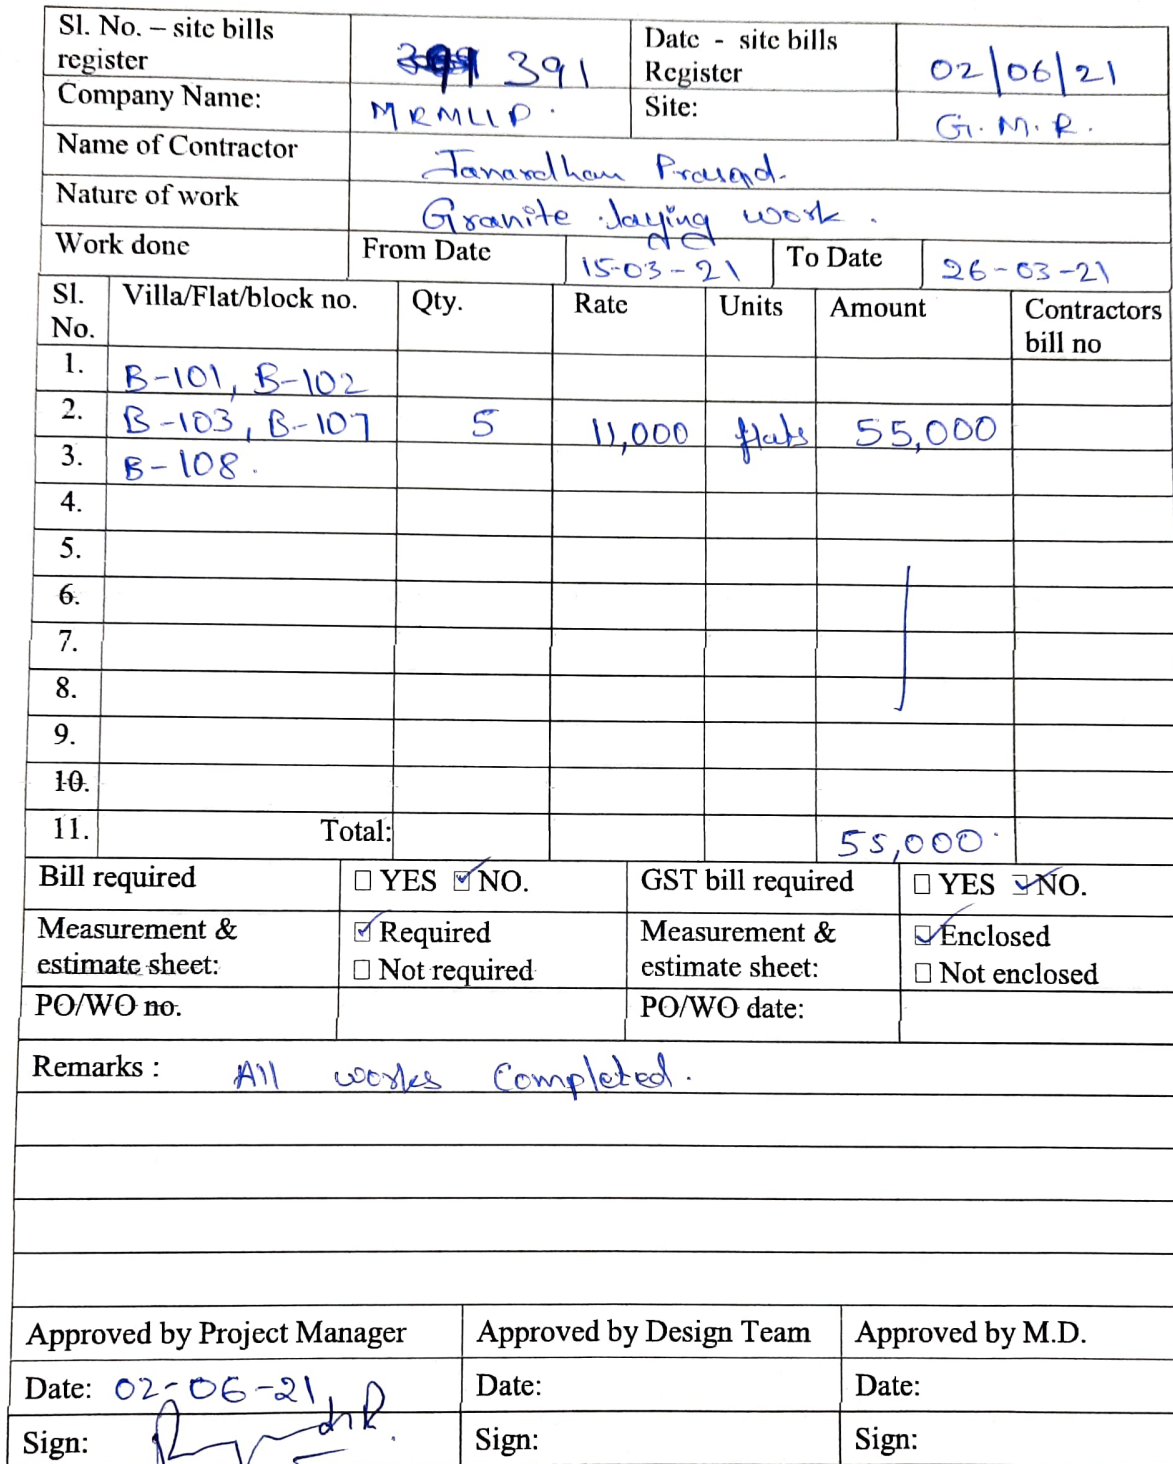 Sl. No. – site bills register 391 Date - site bills Register 02/06/21
Company Name: MRMLLP. Site: G.M.R.
Name of Contractor Janardhan Prasad.
Nature of work Granite laying work.
Work done From Date 15-03-21 To Date 26-03-21
Sl. No. Villa/Flat/block no. Qty. Rate Units Amount Contractors bill no
1. B-101, B-102
2. B-103, B-107 5 11,000 flats 55,000
3. B-108.
4.
5.
6.
7.
8.
9.
10.
11. Total: 55,000
Bill required YES NO. GST bill required YES NO.
Measurement & estimate sheet: Required Measurement & estimate sheet: Enclosed
Not required Not enclosed
PO/WO no. PO/WO date:
Remarks : All works Completed.
Approved by Project Manager Approved by Design Team Approved by M.D.
Date: 02-06-21 Date: Date:
Sign: Sign: Sign: